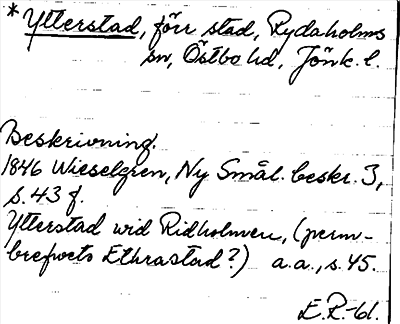 *Ytterstad, förr stad, Rydaholms
sn, Östbo hd, Jönk. l.
Beskrivning.
1846 Wieselgren, Ny Smål. beskr. 3,
s. 43 f.
Ytterstad wid Ridholmen, (perm-
brefwets Ethrastad?) a.a., s. 45.
E.R.-61.